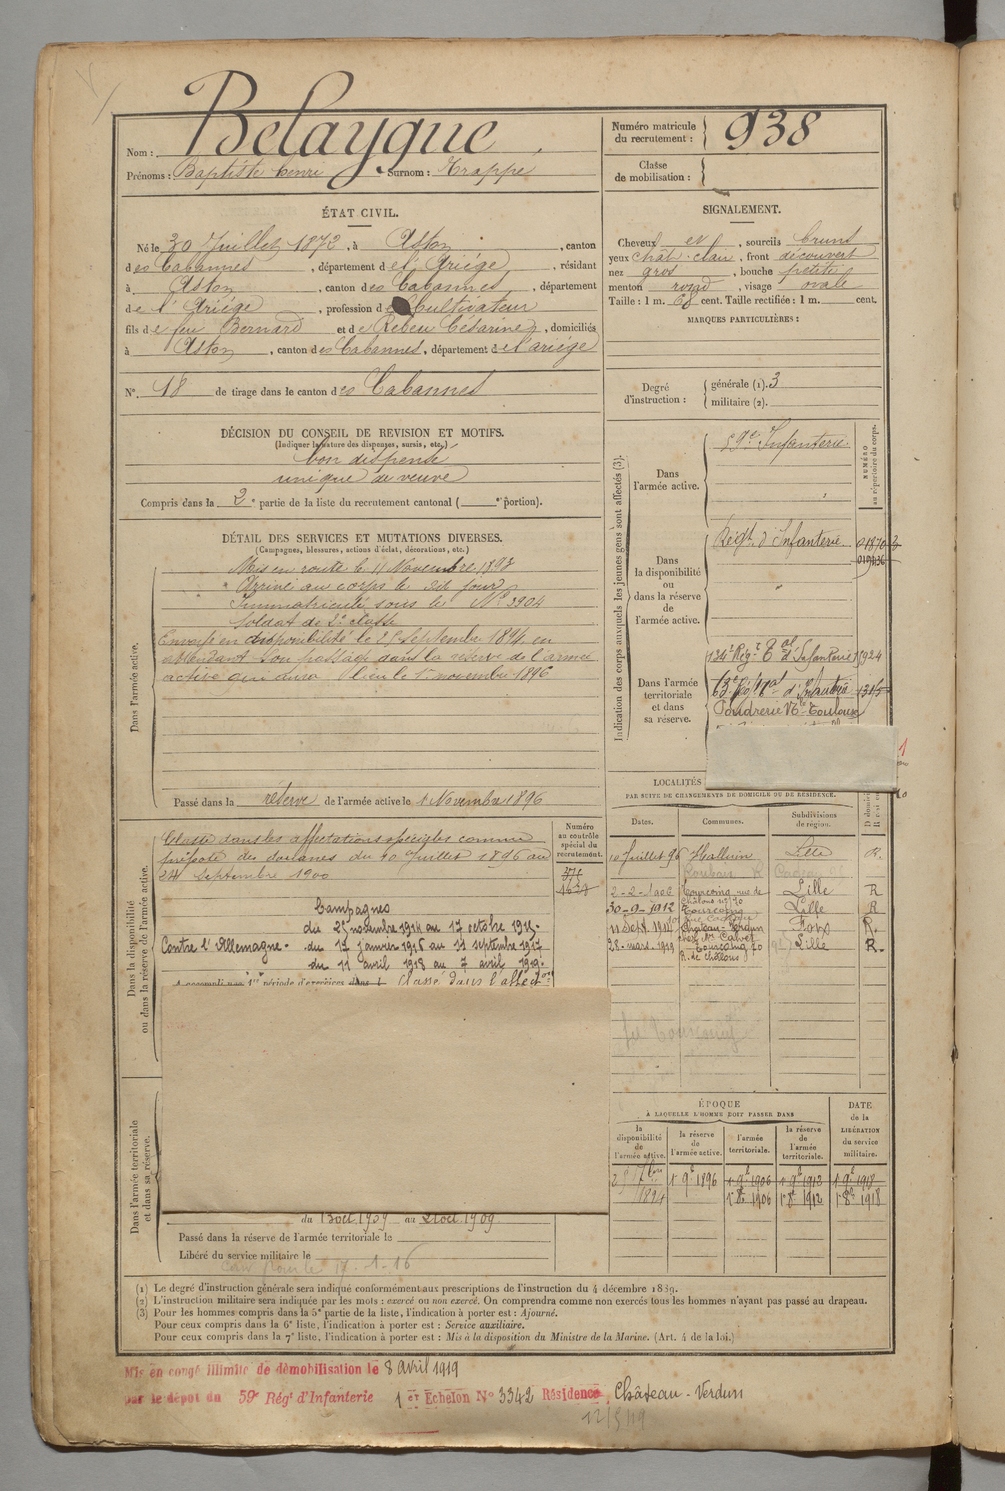 Nom : Belaygue
Prénoms : Baptiste Henri Surnom : Trappé
Numéro matricule du recrutement : 938
Classe de mobilisation :
ÉTAT CIVIL.
Né le 30 Juillet 1872, à Aston, canton
des Cabannes, département de l'Ariége, résidant
à Aston, canton des Cabannes, département
de l'Ariége, profession de Cultivateur
fils de feu Bernard et de Rebeu Césarine, domiciliés
à Aston, canton des Cabannes, département de l'ariége
N°. 18 de tirage dans le canton des Cabannes
DÉCISION DU CONSEIL DE REVISION ET MOTIFS.
(Indiquer la nature des dispenses, sursis, etc.)
bon dispensé
unique de veuve
Compris dans la 2e partie de la liste du recrutement cantonal ( e portion).
DÉTAIL DES SERVICES ET MUTATIONS DIVERSES.
(Campagnes, blessures, actions d'éclat, décorations, etc.)
Dans l'armée active.
Mis en route le 11 Novembre 1893
Arrivé au corps le dit jour
Immatriculé sous le N° 3904
Soldat de 2e classe
Envoyé en disponibilité le 25 Septembre 1894 en
attendant son passage dans la réserve de l'armée
active qui aura lieu le 1er novembre 1896
Passé dans la réserve de l'armée active le 1 Novembre 1896
Dans la disponibilité ou dans la réserve de l'armée active.
Classé dans les affectations spéciales comme
préposé des douanes du 10 Juillet 1896 au
24 Septembre 1900
Numéro au contrôle spécial du recrutement.
Campagnes
Contre l'Allemagne.
du 25 novembre 1914 au 17 octobre 1915.
du 17 janvier 1915 au 11 septembre 1917
du 11 avril 1918 au 7 avril 1919.
A accompli une 1re période d'exercices dans l Classé dans l'affect
Dans l'armée territoriale et dans sa réserve.
du 13 oct. 1909 au 21 oct. 1909
Passé dans la réserve de l'armée territoriale le
Libéré du service militaire le
SIGNALEMENT.
Cheveux et, sourcils bruns
yeux chât. clair, front découvert
nez gros, bouche petite
menton rond, visage ovale
Taille : 1 m. 68 cent. Taille rectifiée : 1 m. cent.
MARQUES PARTICULIÈRES :
Degré d'instruction : générale (1). 3
militaire (2).
Indication des corps auxquels les jeunes gens sont affectés (3).
NUMÉRO au répertoire du corps.
Dans l'armée active.
59e Infanterie.
Dans la disponibilité ou dans la réserve de l'armée active.
Régt. d'Infanterie
Dans l'armée territoriale et dans sa réserve.
134e Rég.t Tal d'Infanterie 1924
Poudrerie Nle Toulouse
LOCALITÉS
PAR SUITE DE CHANGEMENTS DE DOMICILE OU DE RÉSIDENCE.
Dates. Communes. Subdivisions de région.
10 Juillet 96 Halluin Lille R.
2-2-1906 Tourcoing rue de Châlons n° 70 Lille R
30-9-1912 Tourcoing Lille R
11 Sept. 1917 Château-Verdun chez Mr Calvet Foix R.
28-mars-1919 Tourcoing 70 R. de Châlons Lille R.
ÉPOQUE
À LAQUELLE L'HOMME DOIT PASSER DANS
DATE de la LIBÉRATION du service militaire.
la disponibilité de l'armée active.
la réserve de l'armée active.
l'armée territoriale.
la réserve de l'armée territoriale.
25 7bre 1894 1er 9e 1896 1er 9e 1906 1er 9e 1912 1er 9e 1918
1er 8e 1906 1er 8e 1912 1er 8e 1918
(1) Le degré d'instruction générale sera indiqué conformément aux prescriptions de l'instruction du 4 décembre 1889.
(2) L'instruction militaire sera indiquée par les mots : exercé ou non exercé. On comprendra comme non exercés tous les hommes n'ayant pas passé au drapeau.
(3) Pour les hommes compris dans la 5e partie de la liste, l'indication à porter est : Ajourné.
Pour ceux compris dans la 6e liste, l'indication à porter est : Service auxiliaire.
Pour ceux compris dans la 7e liste, l'indication à porter est : Mis à la disposition du Ministre de la Marine. (Art. 4 de la loi.)
Mis en congé illimité de démobilisation le 8 Avril 1919
par le dépôt du 59e Régt d'Infanterie 1er Echelon N° 3342 Résidence Château-Verdun
12/5/19